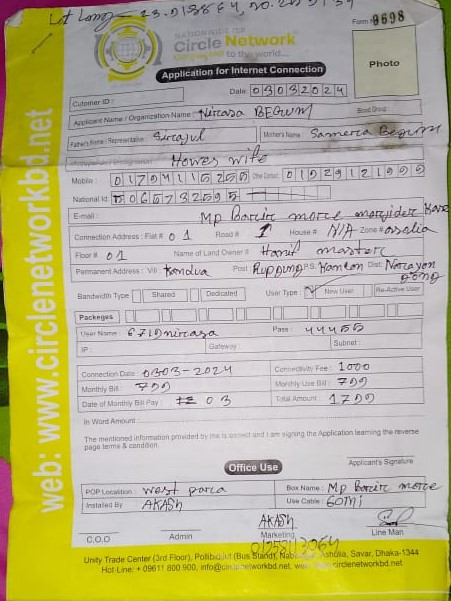 Lat Long -
NATIONWIDE ISP
Circle Network
Connecting you to the world...
Form # 9698
Application for Internet Connection
Photo
Date: 03032024
Cutomer ID :
Applicant Name / Organization Name : Nircasa BEGUM Blood Group :
Father's Name / Representative : Sircajul Mother's Name : Samerca Begum
Howes wife
Mobile :
National Id:
E-mail : Mp Barcir morce
Connection Address : Flat # 01 Road # 1 House # N/A Zone # asalia
Floor # 01 Name of Land Owner # Hanif masterc
Permanent Address : Vill Kandua Post P.S. Dist: Narcayon gong
Bandwidth Type Shared Dedicated User Type : New User Re-Active User
Packeges
User Name : 6719nircasa Pass : 44455
IP : Gateway Subnet :
Connection Date : 0303-2024 Connectivity Fee : 1000
Monthly Bill : 799 Monthly Use Bill : 799
Date of Monthly Bill Pay : 03 Total Amount : 1799
In Word Amount
The mentioned information provided by me is correct and I am signing the Application learning the reverse
page terms & condition.
Applicant's Signature
Office Use
POP Location : west parca Box Name : Mp Barcir morce
Installed By AKASH Use Cable : 60mi
AKASH
C.O.O Admin Marketing Line Man
Unity Trade Center (3rd Floor), Pollibidyut (Bus Stand), Ashulia, Savar, Dhaka-1344
Hot Line: + 09611 800 900, info@circlenetworkbd.net, www.circlenetworkbd.net
web: www.circlenetworkbd.net